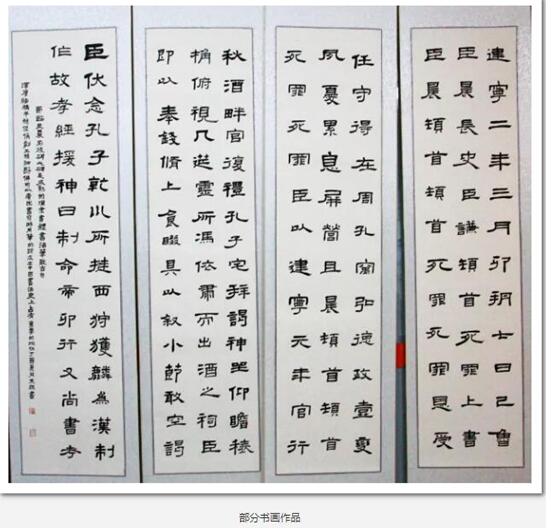 建寧二年三月卯朔七日己魯
臣晨長史臣謙頓首死罪上書
臣晨頓首頓首死罪死罪恩受
任守得在周孔寓弘德政壹變
夙憂累息屏營且晨頓首頓首
死罪死罪臣以建寧元年官行
秋酒畔官復禮孔子宅拜謁神坐仰瞻榱
桷俯視几筵靈所馮依肅而出酒之祠臣
即以奉錢脩上食醊具以叙小節敢空謁
臣伏念孔子乾川所挺西狩獲麟為漢制
作故孝經援神曰制命帝卯行又尚書考
部分书画作品